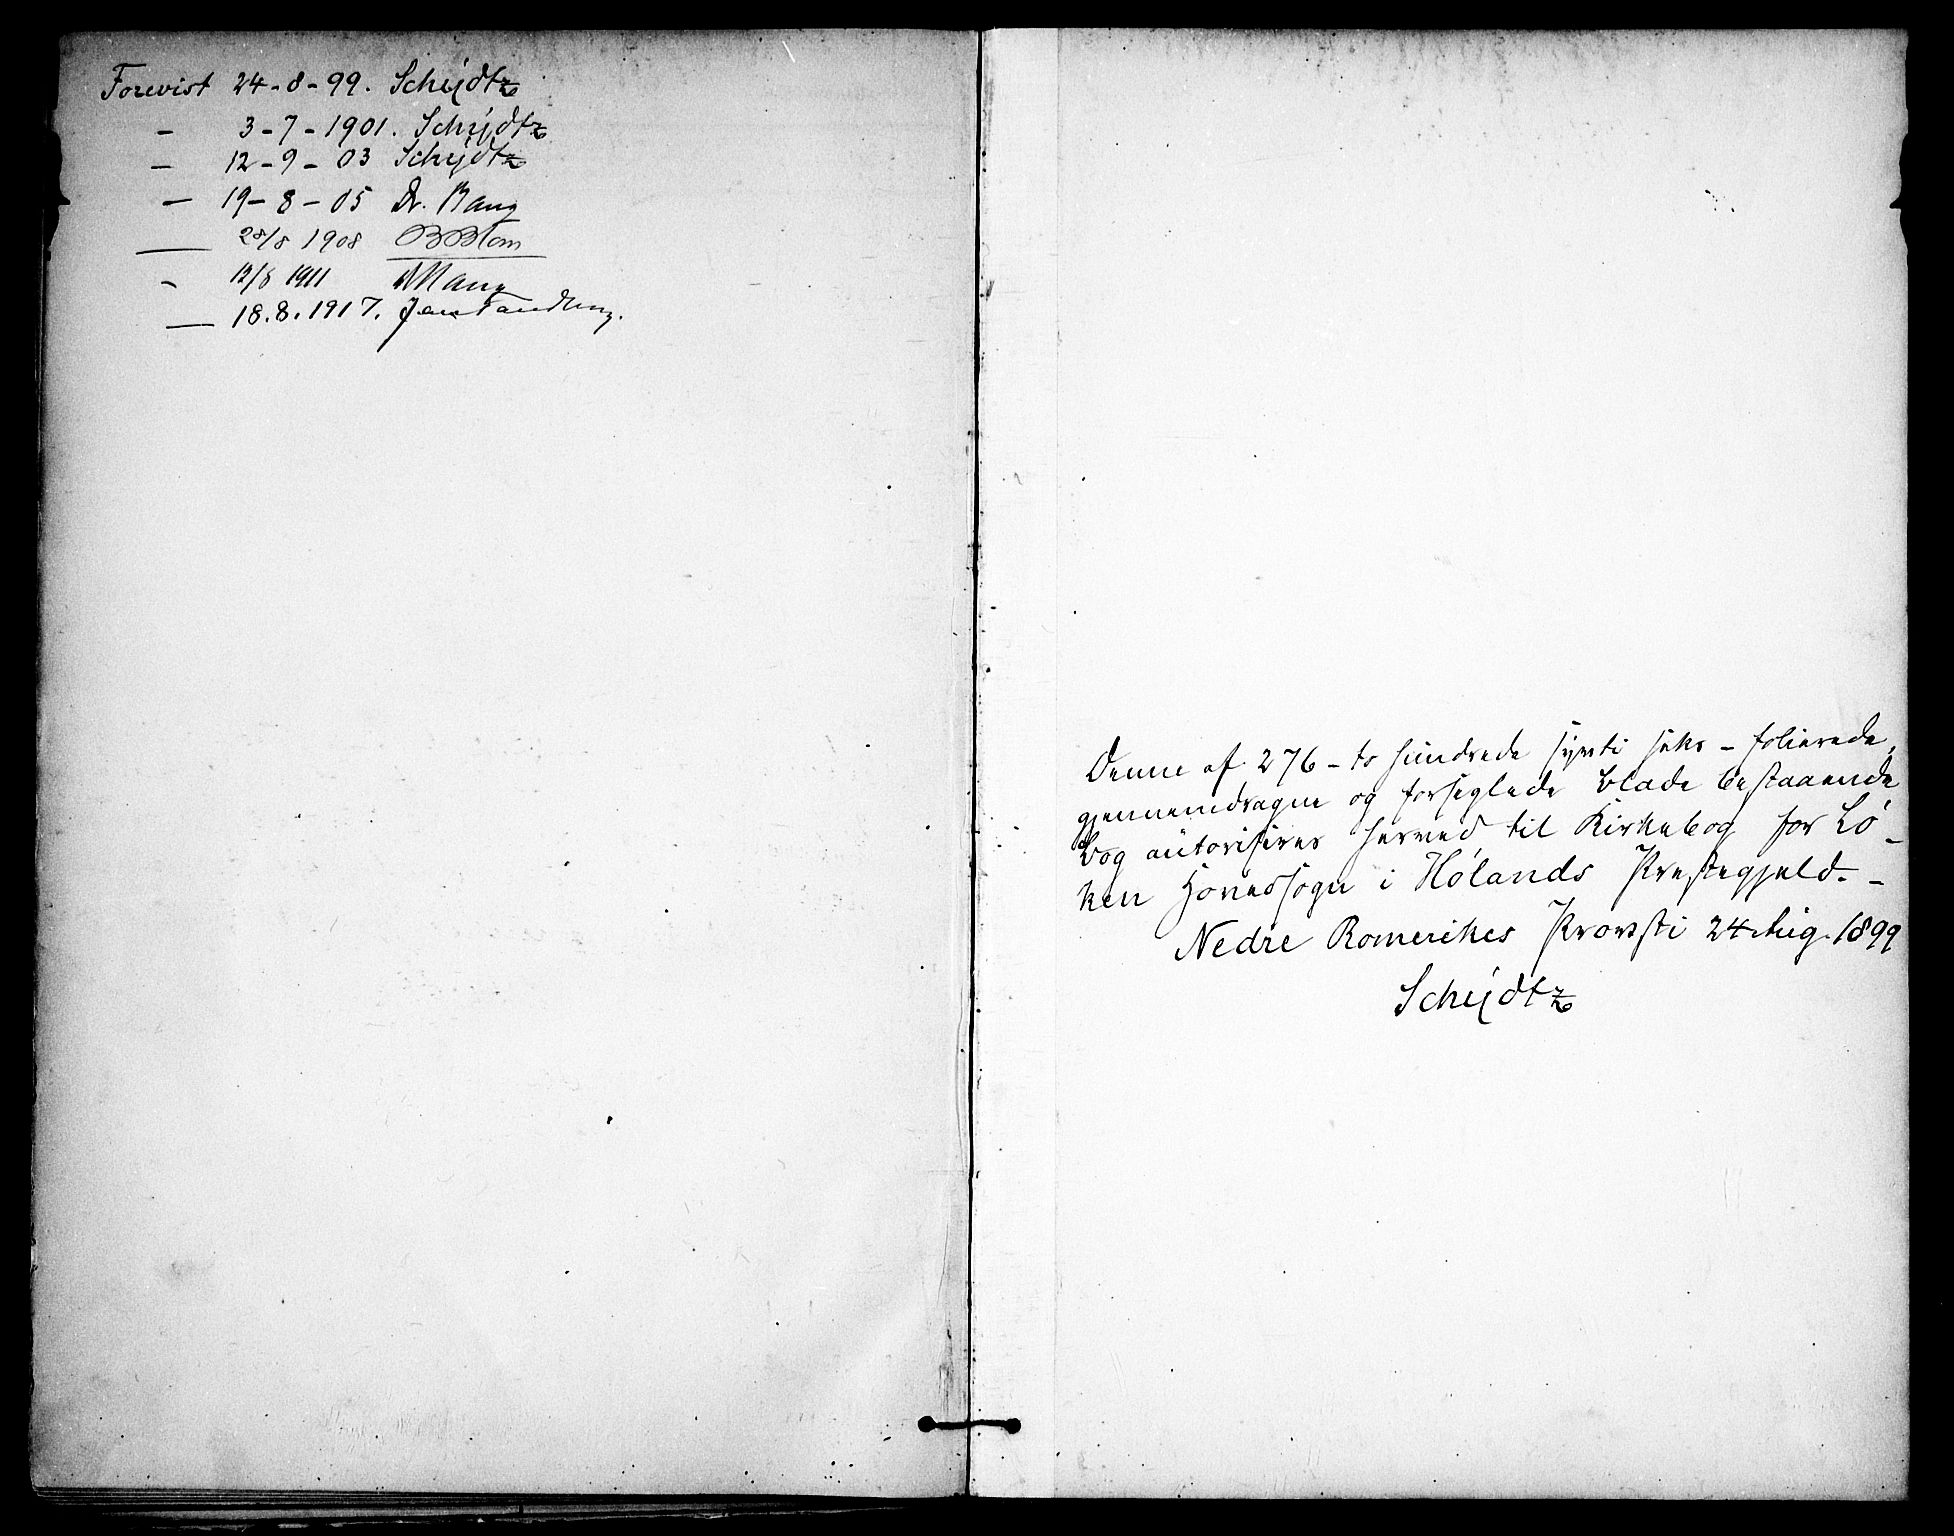 Forevist 24-8-99. Schijdtz
— 3-7-1901. Schijdtz
— 12-9-03 Schijdtz
— 19-8-05 Dr. Bang
— 28/8 1908 B Blom
— 12/8 1911 Bang
— 18.8.1917. Jens
Denne af 276 - to hundrede sytti seks - folierede,
gjennemdragne og forseglede blade bestaaende
bog autoriseres herved til Kirkebog for Lö-
ken Hovedsogn i Hölands Prestegjeld. -
Nedre Romerikes Provsti 24 Aug. 1899
Schijdtz